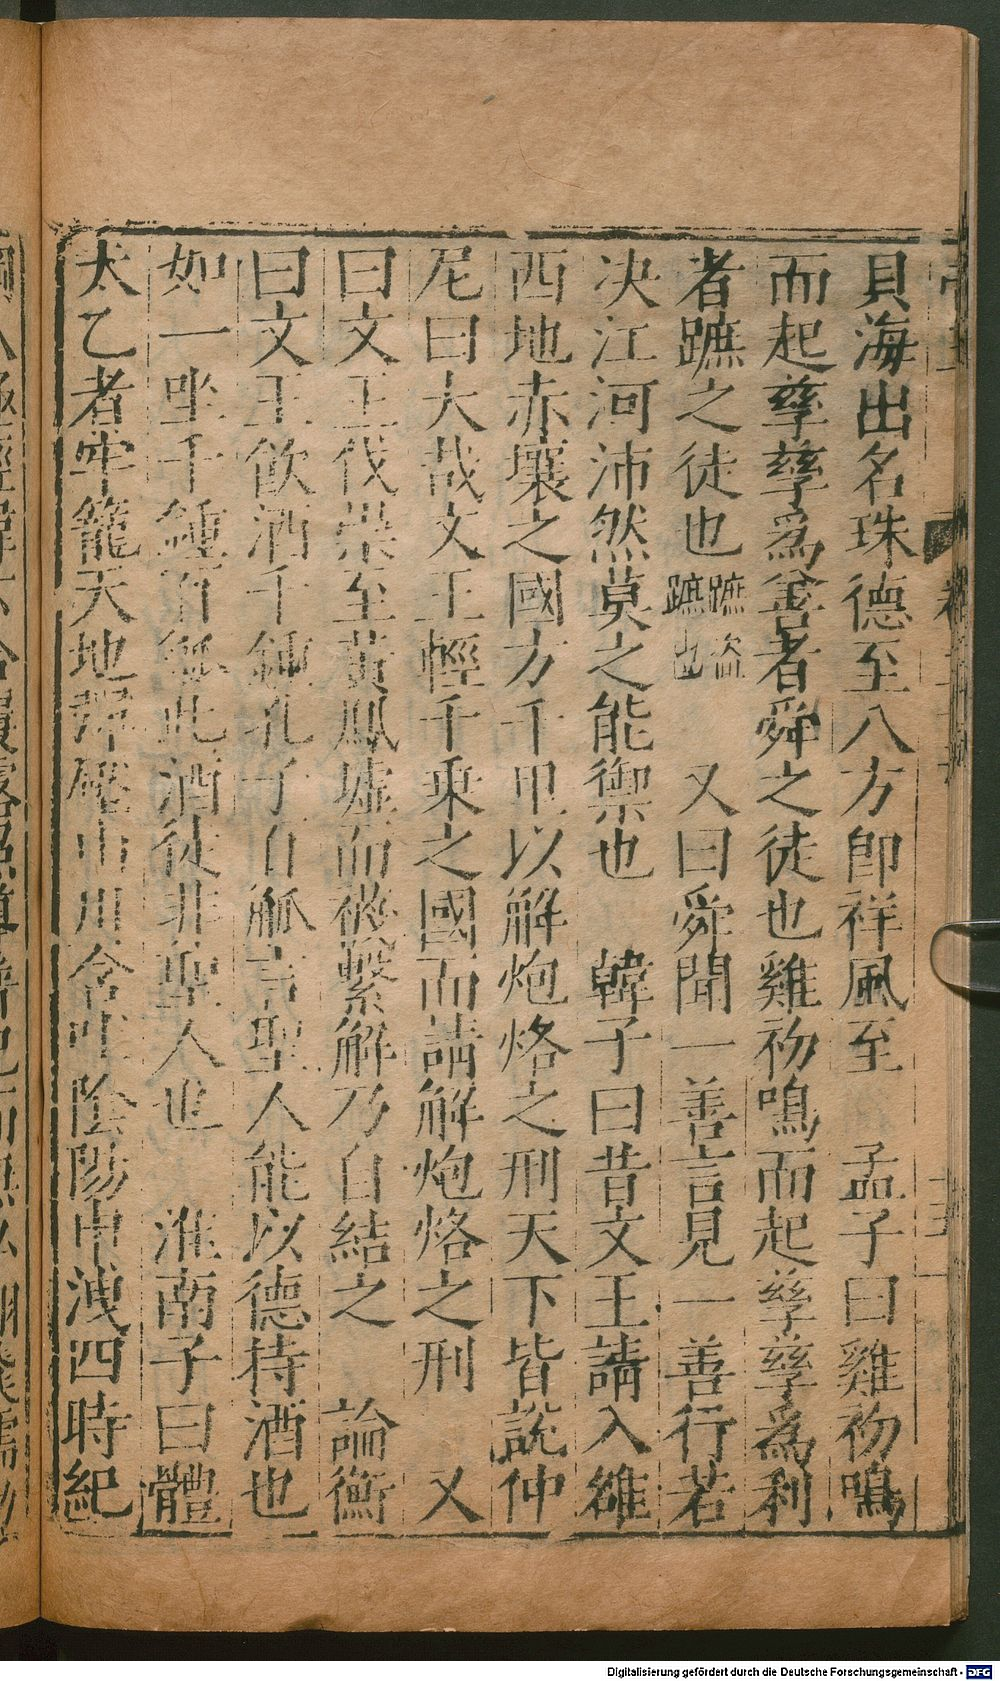 貝海出名珠德至八方即祥風至　孟子曰雞初鳴
而起孳孳爲善者舜之徒也雞初鳴而起孳孳爲利
者蹠之徒也蹠盜蹠也　又曰舜聞一善言見一善行若
决江河沛然莫之能禦也　韓子曰昔文王請入雒
西地赤壤之國方千里以解炮烙之刑天下皆說仲
尼曰大哉文王輕千乘之國而請解炮烙之刑　又
曰文王伐崇至黃鳳墟而襪繫解乃自結之　論衡
曰文王飲酒千鍾孔子百觚言聖人能以德持酒也
如一坐千鍾百觚此酒徒非聖人也　淮南子曰體
太乙者牢籠天地彈壓山川含吐陰陽申洩四時紀
Digitalisierung gefördert durch die Deutsche Forschungsgemeinschaft - DFG